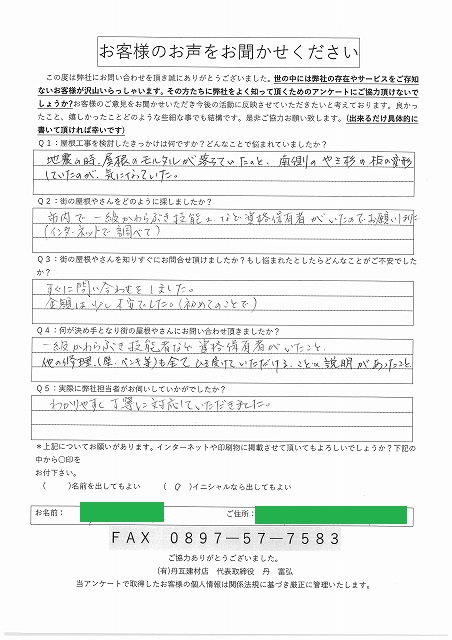 お客様のお声をお聞かせください
この度は弊社にお問い合わせを頂き誠にありがとうございました。世の中には弊社の存在やサービスをご存知
ないお客様が沢山いらっしゃいます。その方たちに弊社をよく知って頂くためのアンケートにご協力頂けないで
しょうか?お客様のご意見をお聞かせいただき今後の活動に反映させていただきたいと考えております。良かっ
たこと、嬉しかったことどのような些細な事でも結構です。是非ご協力お願い致します。(出来るだけ具体的に
書いて頂ければ幸いです)
Q1:屋根工事を検討したきっかけは何ですか?どんなことで悩まれていましたか?
地震の時、屋根のモルタルが落ちていたのと、南側のやき杉の板の変形
していたのが、気になっていた。
Q2:街の屋根やさんをどのように探しましたか?
市内で一級かわらぶき技能士など資格保有者がいたのでお願いしました
(インターネットで調べて)
Q3:街の屋根やさんを知りすぐにお問合せ頂けましたか?もし悩まれたとしたらどんなことがご不安でした
か?
すぐに問い合わせをしました。
金額は少し不安でした。(初めてのことで)
Q4:何が決め手となり街の屋根やさんにお問い合わせ頂きましたか?
一級かわらぶき技能者など資格保有者がいたこと、
他の修理(壁、ペンキ等)も全てひき受けていただけることの説明があったこと
Q5:実際に弊社担当者がお伺いしていかがでしたか?
わかりやすく丁寧に対応していただきました。
*上記についてお願いがあります。インターネットや印刷物に掲載させて頂いてもよろしいでしょうか?下記の
中から○印を
お付下さい。
( )名前を出してもよい ( ○ )イニシャルなら出してもよい
お名前: ご住所:
FAX 0897-57-7583
ご協力ありがとうございました。
(有)丹互建材店 代表取締役 丹 富弘
当アンケートで取得したお客様の個人情報は関係法規に基づき厳正に管理いたします。